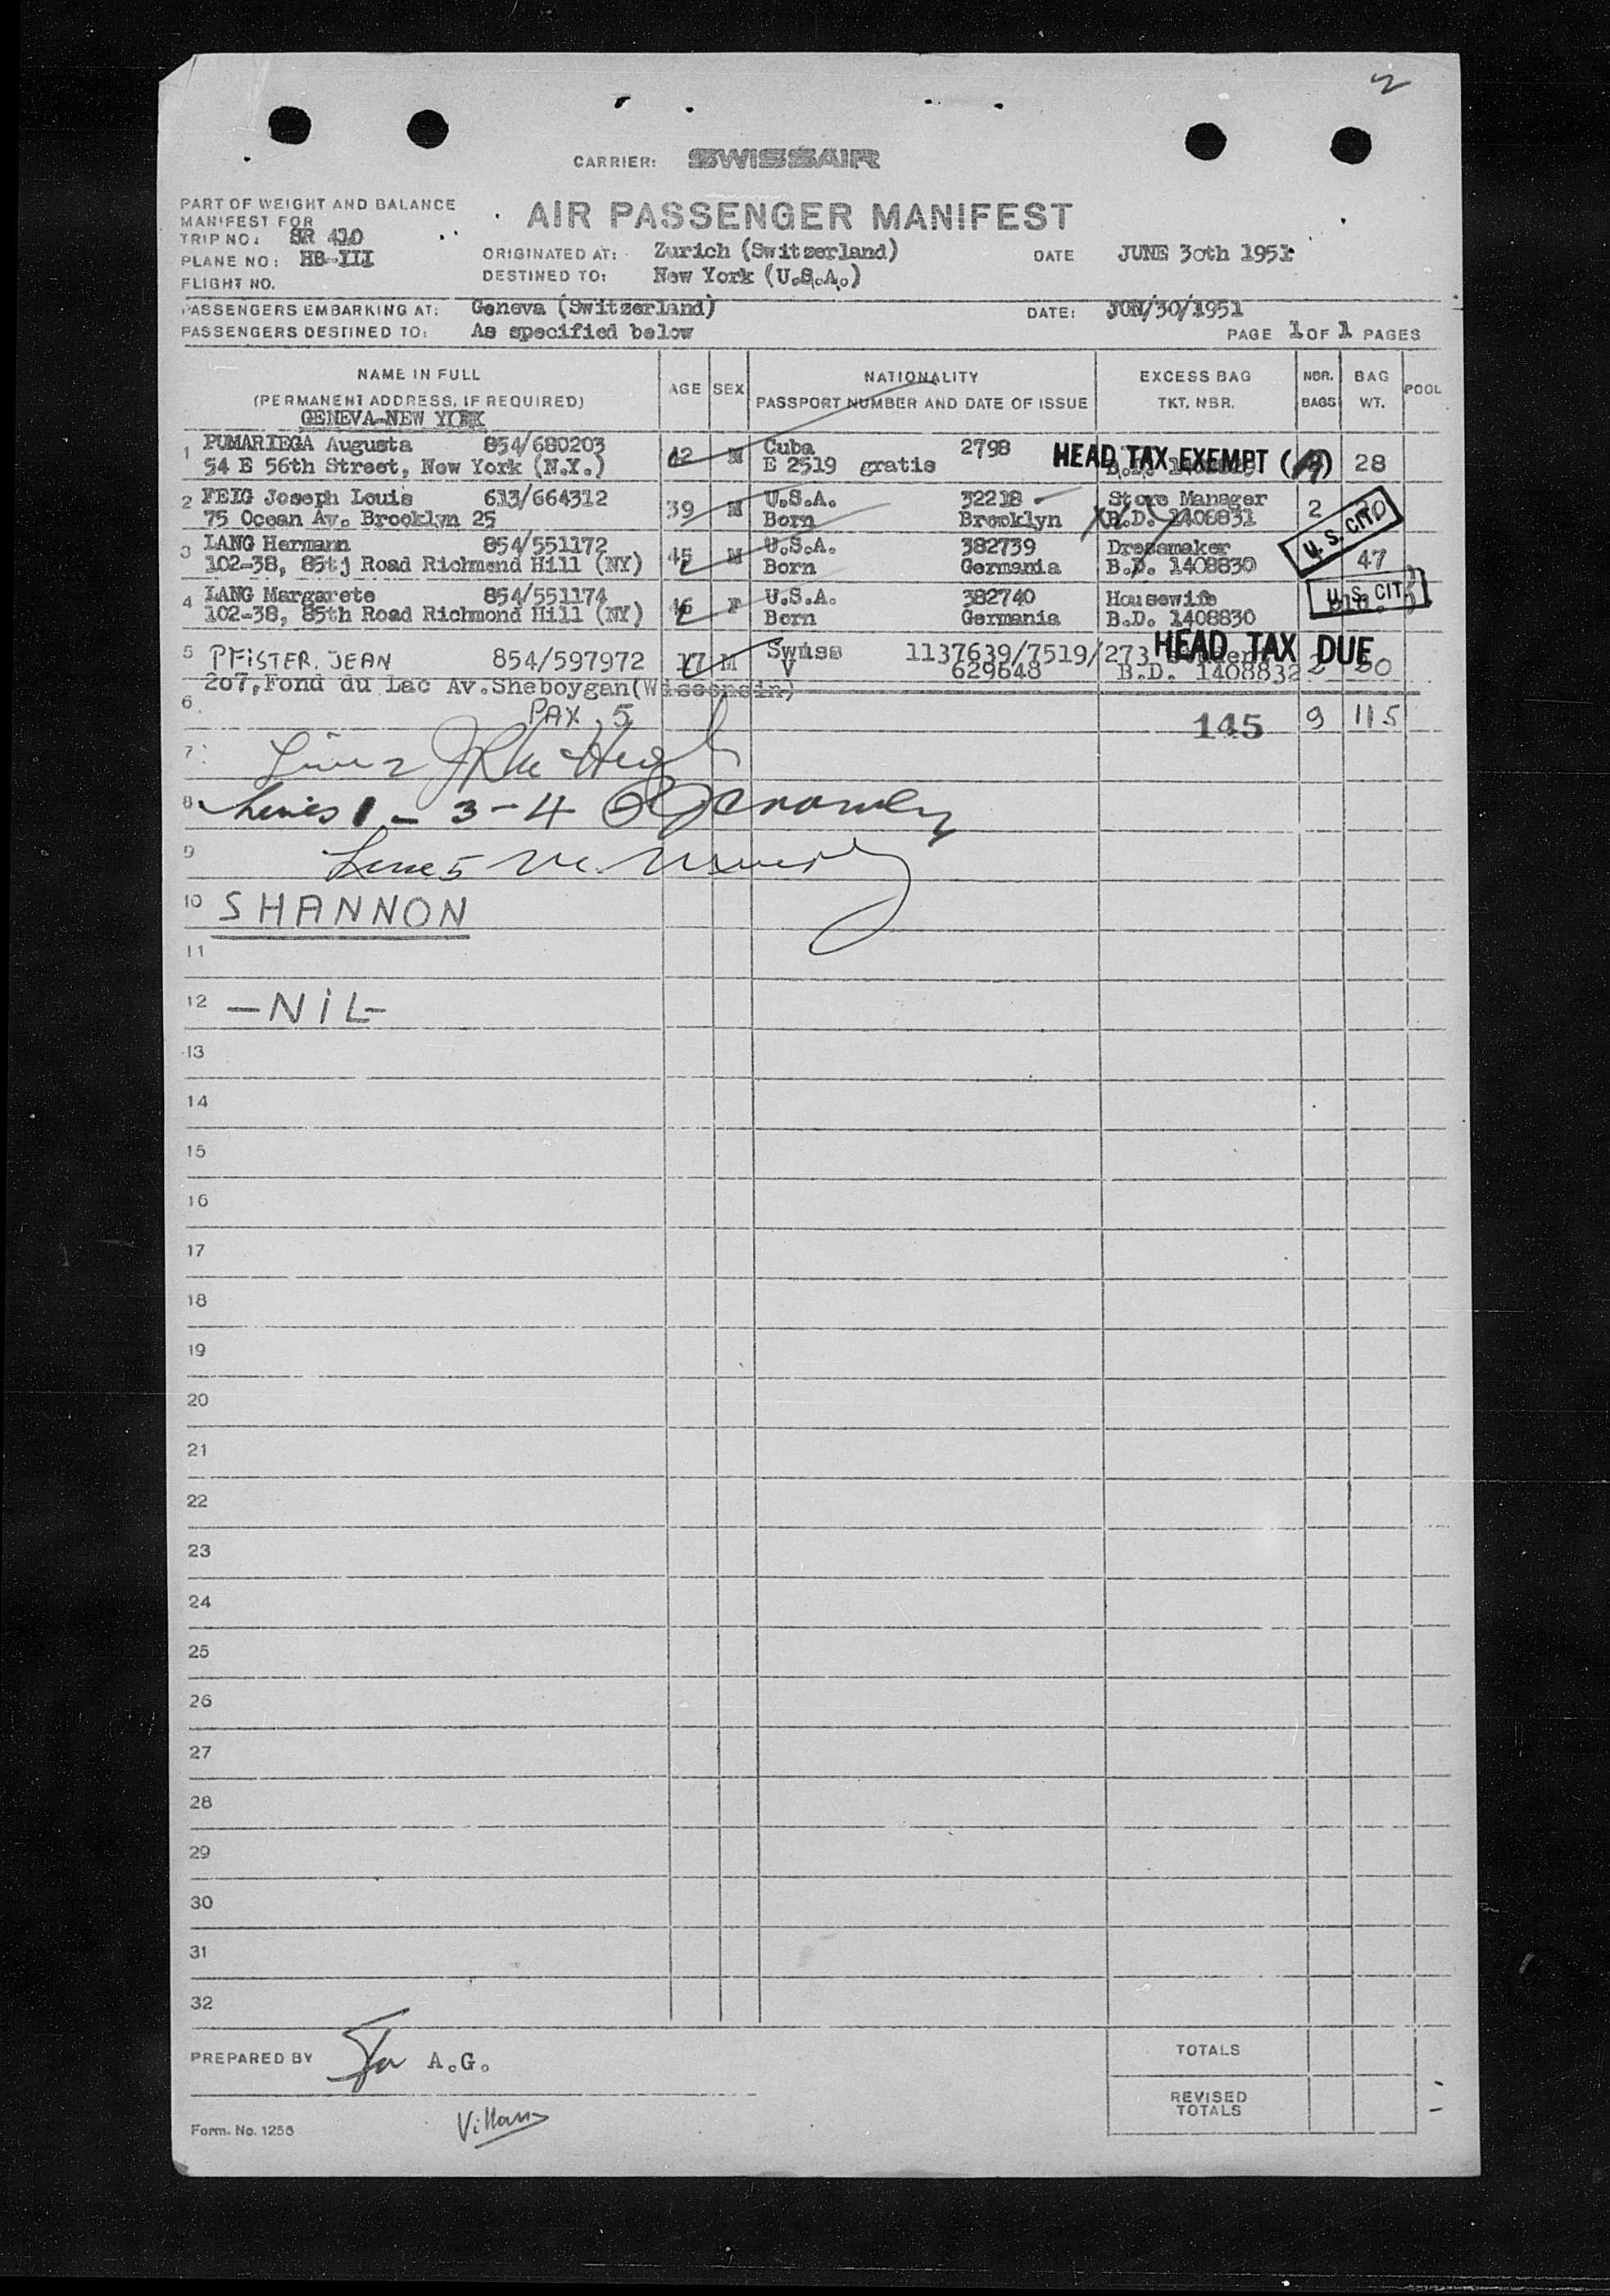 2
CARRIER: SWISSAIR
PART OF WEIGHT AND BALANCE
MANIFEST FOR
AIR PASSENGER MANIFEST
TRIP NO: SR 410
ORIGINATED AT: Zurich (Switzerland) DATE JUNE 30th 1951
PLANE NO: HB-III
DESTINED TO: New York (U.S.A.)
FLIGHT NO.
PASSENGERS EMBARKING AT: Geneva (Switzerland) DATE: JUN/30/1951
PASSENGERS DESTINED TO: As specified below PAGE 1 OF 1 PAGES
NAME IN FULL AGE SEX NATIONALITY EXCESS BAG NBR. BAG POOL
(PERMANENT ADDRESS, IF REQUIRED) PASSPORT NUMBER AND DATE OF ISSUE TKT. NBR. BAGS WT.
GENEVA-NEW YORK
1 PUMARIEGA Augusta 854/680203 42 M Cuba 2798 HEAD TAX EXEMPT 28
54 E 56th Street, New York (N.Y.) E 2519 gratis
2 FEIG Joseph Louis 613/664312 39 M U.S.A. 32218 Store Manager 2
75 Ocean Av. Brooklyn 25 Born Brooklyn B.D. 1408831 U.S. CIT.
3 LANG Hermann 854/551172 45 M U.S.A. 382739 Dressmaker 47
102-38, 85tj Road Richmond Hill (NY) Born Germania B.D. 1408830
4 LANG Margarete 854/551174 46 F U.S.A. 382740 Housewife U.S. CIT.
102-38, 85th Road Richmond Hill (NY) Born Germania B.D. 1408830
5 PFISTER. JEAN 854/597972 17 M Swiss 1137639/7519/273 HEAD TAX DUE
207, Fond du Lac Av. Sheboygan (Wisconsin) V 629648 B.D. 1408832 2 20
6 PAX 5 145 9 115
7 Line 2
8 Lines 1 - 3 - 4
9 Line 5
10 SHANNON
11
12 - NIL -
13
14
15
16
17
18
19
20
21
22
23
24
25
26
27
28
29
30
31
32
PREPARED BY A.G. TOTALS
REVISED
TOTALS
Form. No. 1256